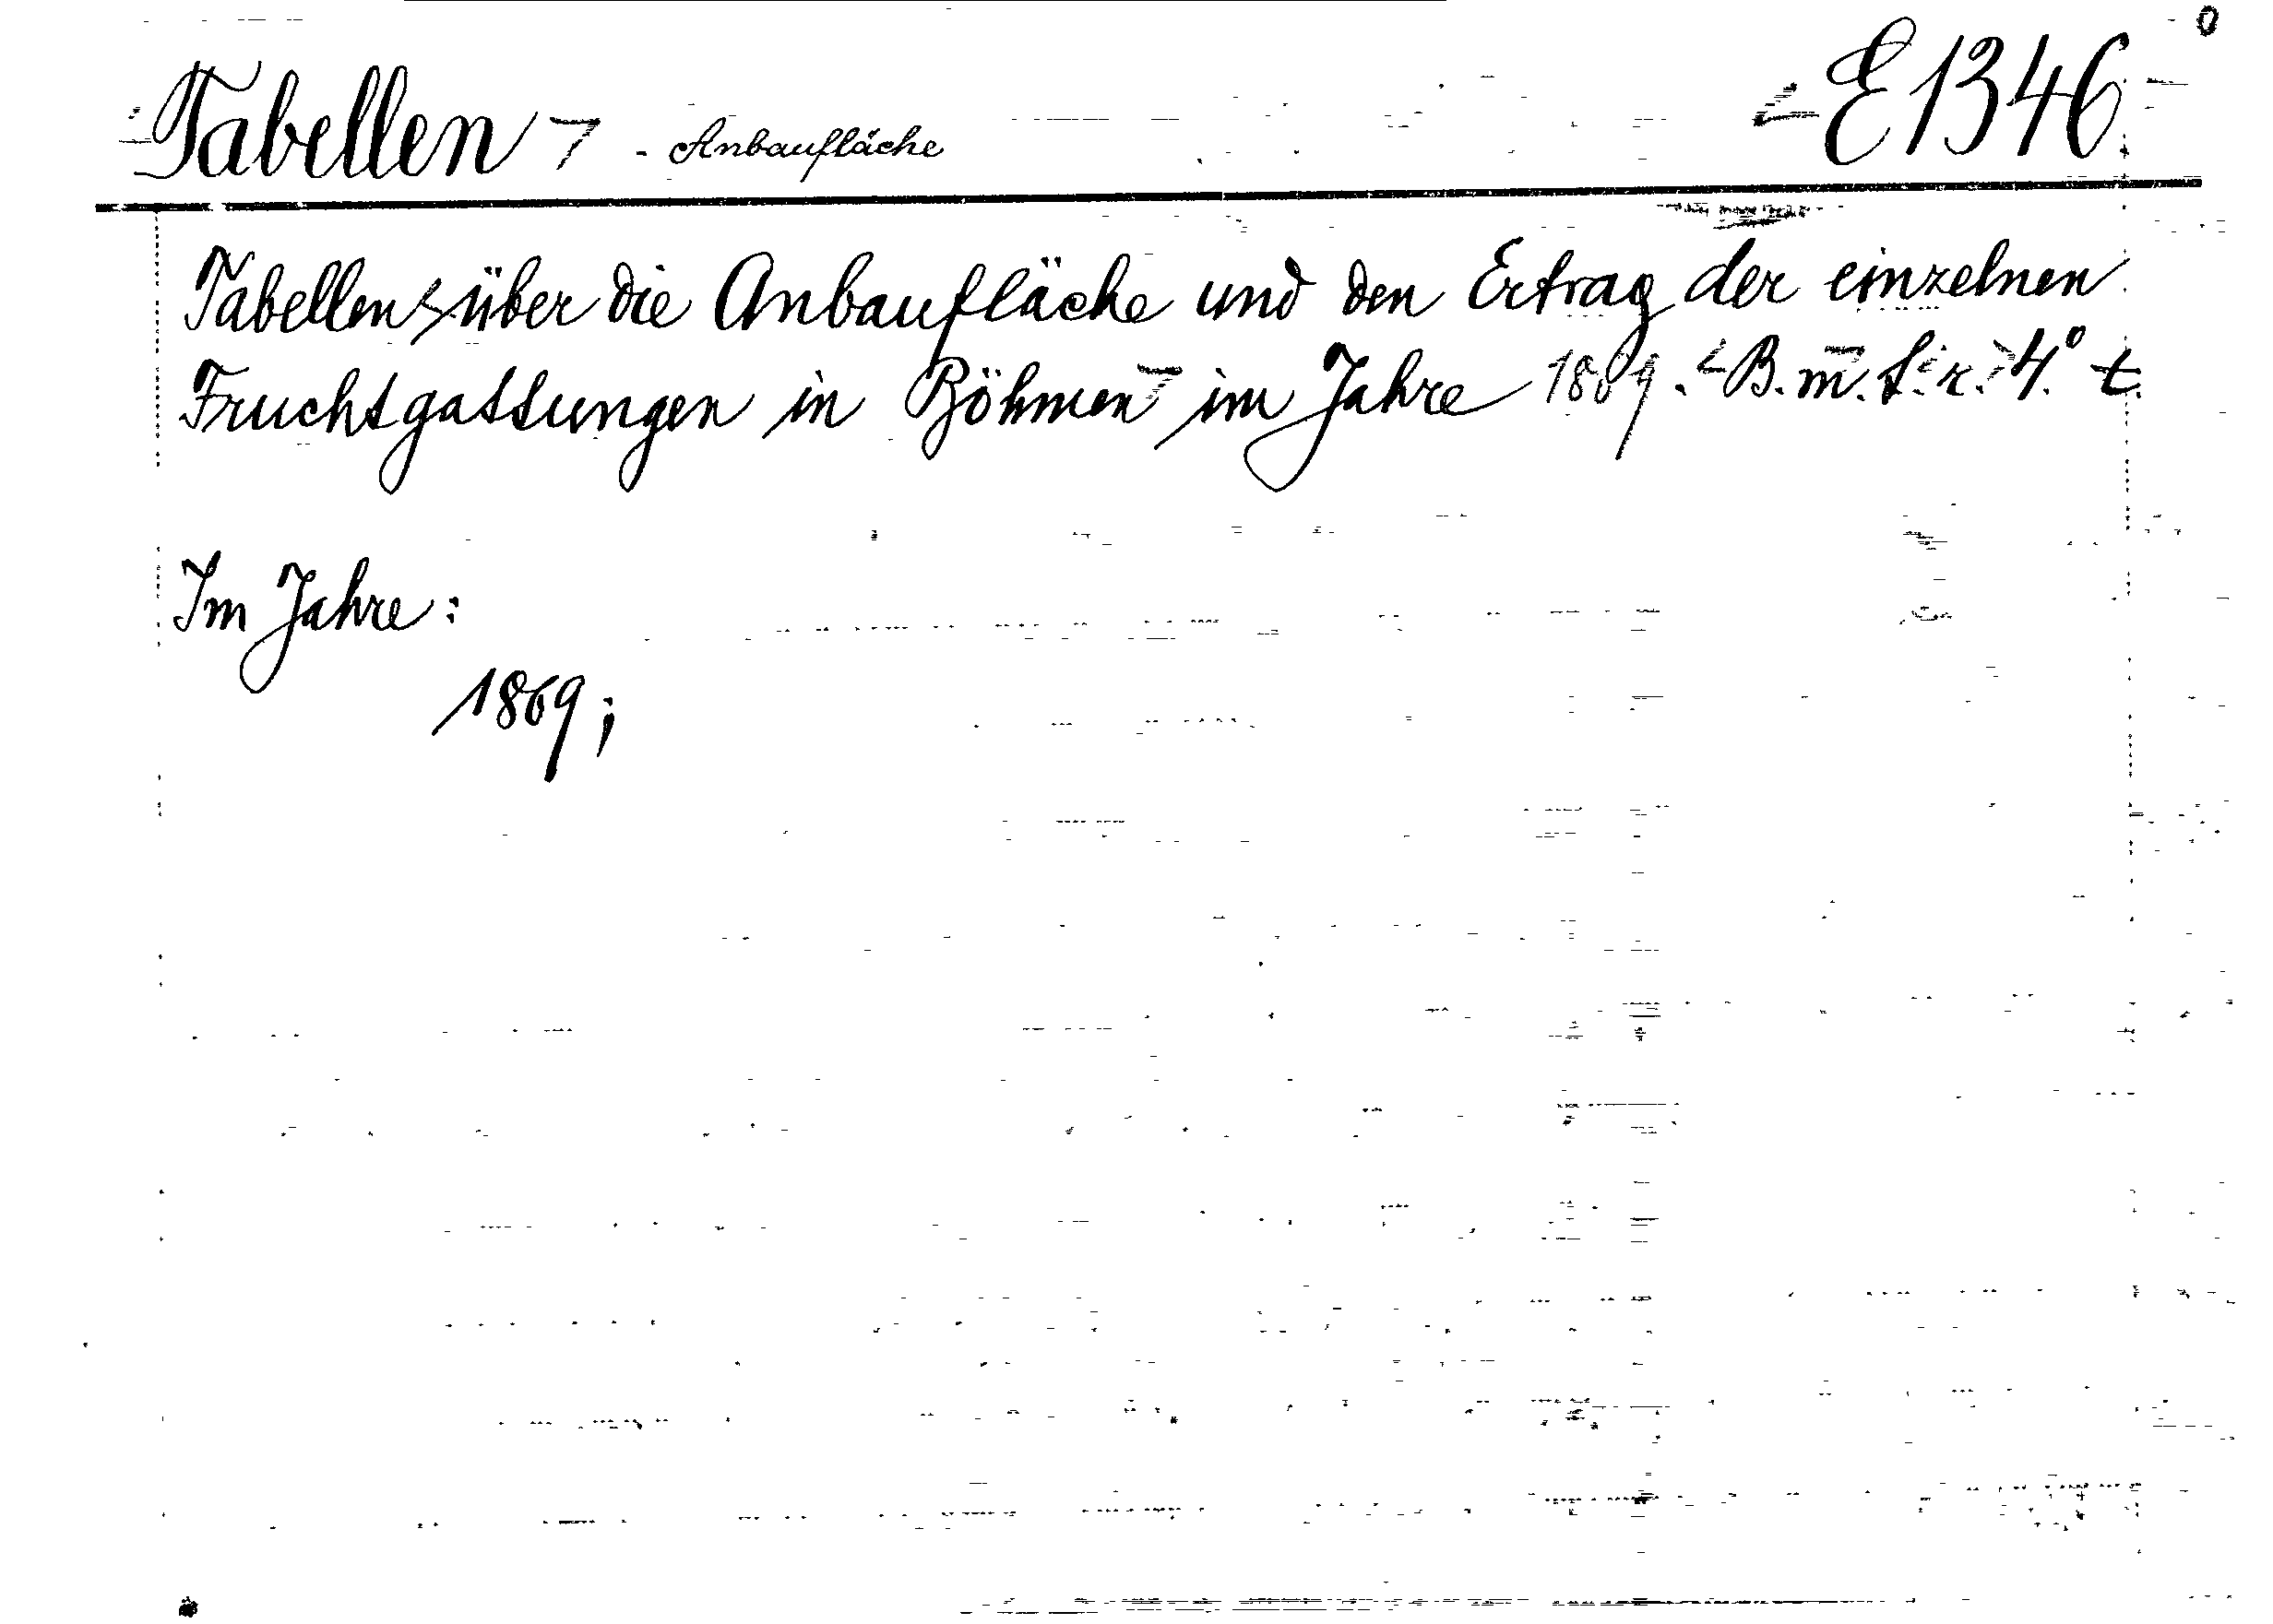 Tabellen - Anbaufläche E1346.
Tabellen über die Anbaufläche und den Ertrag der einzelnen
Fruchtgattungen in Böhmen im Jahre 1869. B. m. 4.°
Im Jahre:
1869;